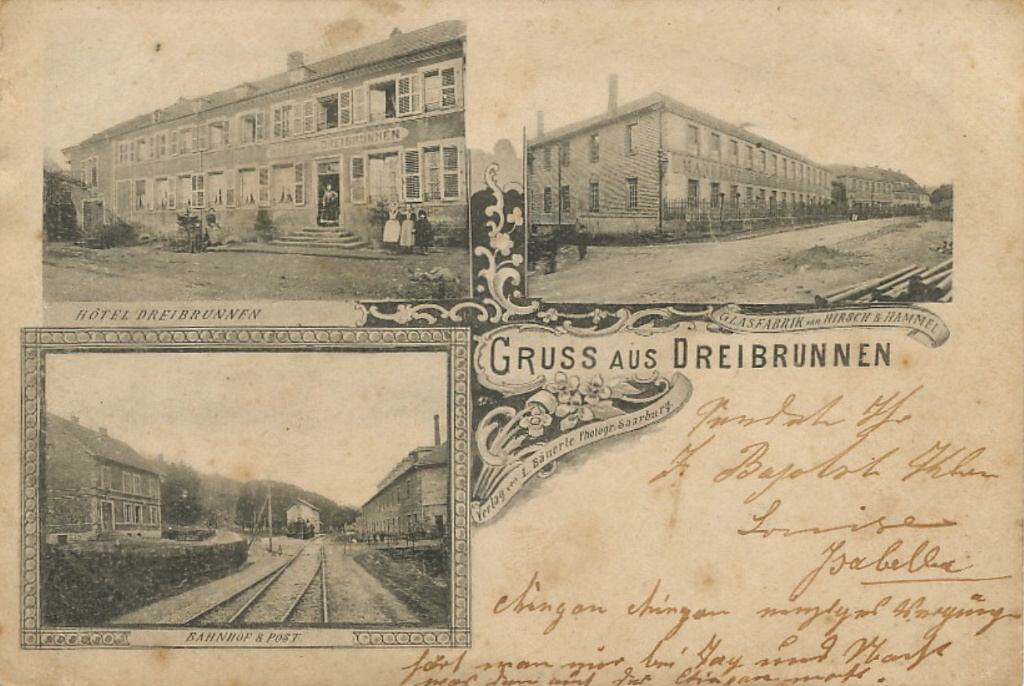 DREIBRUNNEN
HÔTEL DREIBRUNNEN
GLASFABRIK von HIRSCH & HAMMEL
GRUSS AUS DREIBRUNNEN
Verlag von L. Bäuerle Photogr. Saarburg.
BAHNHOF & POST
Sendet Ihr
Louise
Isabella
hört man nur bei Tag und Nacht